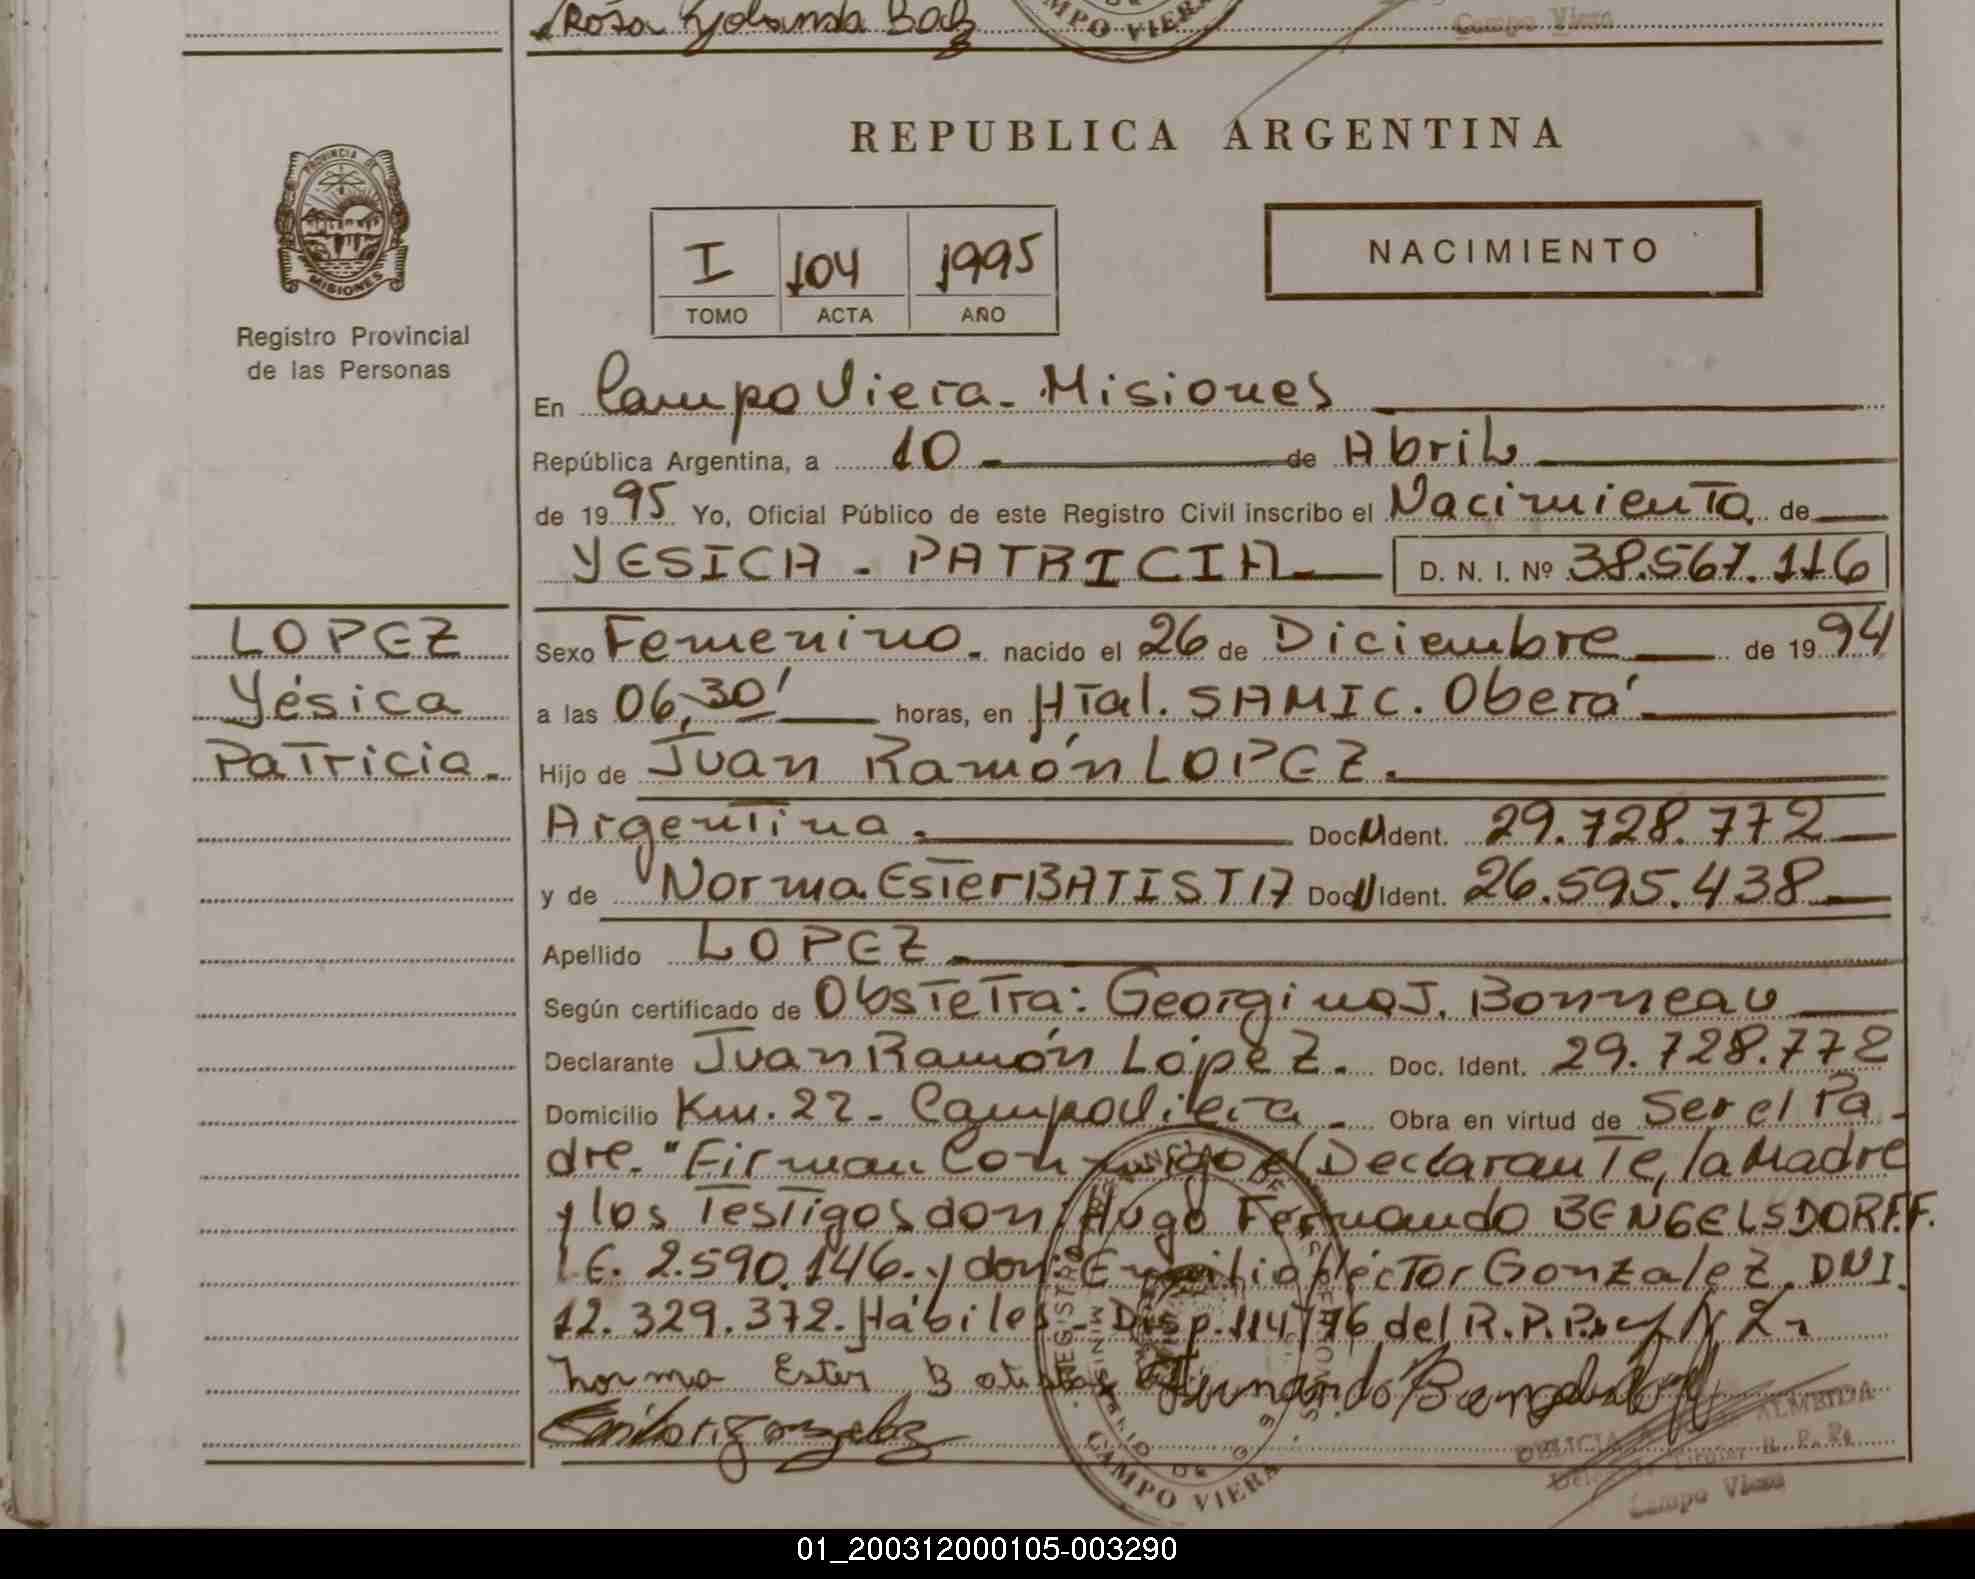 Rosa Yolanda
CAMPO VIERA
Campo Viera
PROVINCIA DE
MISIONES
Registro Provincial
de las Personas
REPUBLICA ARGENTINA
I 104 1995
TOMO ACTA AÑO
NACIMIENTO
En Campo Viera - Misiones
República Argentina, a 10 de Abril
de 1995 Yo, Oficial Público de este Registro Civil inscribo el Nacimiento de
YESICA - PATRICIA D. N. I. Nº 38.567.116
LOPEZ
Yésica
Patricia.
Sexo Femenino. nacido el 26 de Diciembre de 1994
a las 06,30' horas, en Htal. SAMIC. Oberá
Hijo de Juan Ramón LOPEZ.
Argentina. Doc. Ident. 29.728.772
y de Norma Ester BATISTA Doc. Ident. 26.595.438
Apellido LOPEZ
Según certificado de Obstetra: Georgina J. Bonneau
Declarante Juan Ramón López. Doc. Ident. 29.728.772
Domicilio Km. 22 - Campo Viera - Obra en virtud de Ser el Pa-
dre. "Firman Conmigo el Declarante, la Madre
y los Testigos don: Hugo Fernando BENGELSDORFF.
L.E. 2.590.146. y don: Emilio Héctor Gonzalez. DNI.
12.329.372. Hábiles. Disp. 114/76 del R.P.P.
Norma Ester Batista
Fernando Bengelsdorff
CAMPO VIERA
ALMEIDA
Campo Viera
01_200312000105-003290